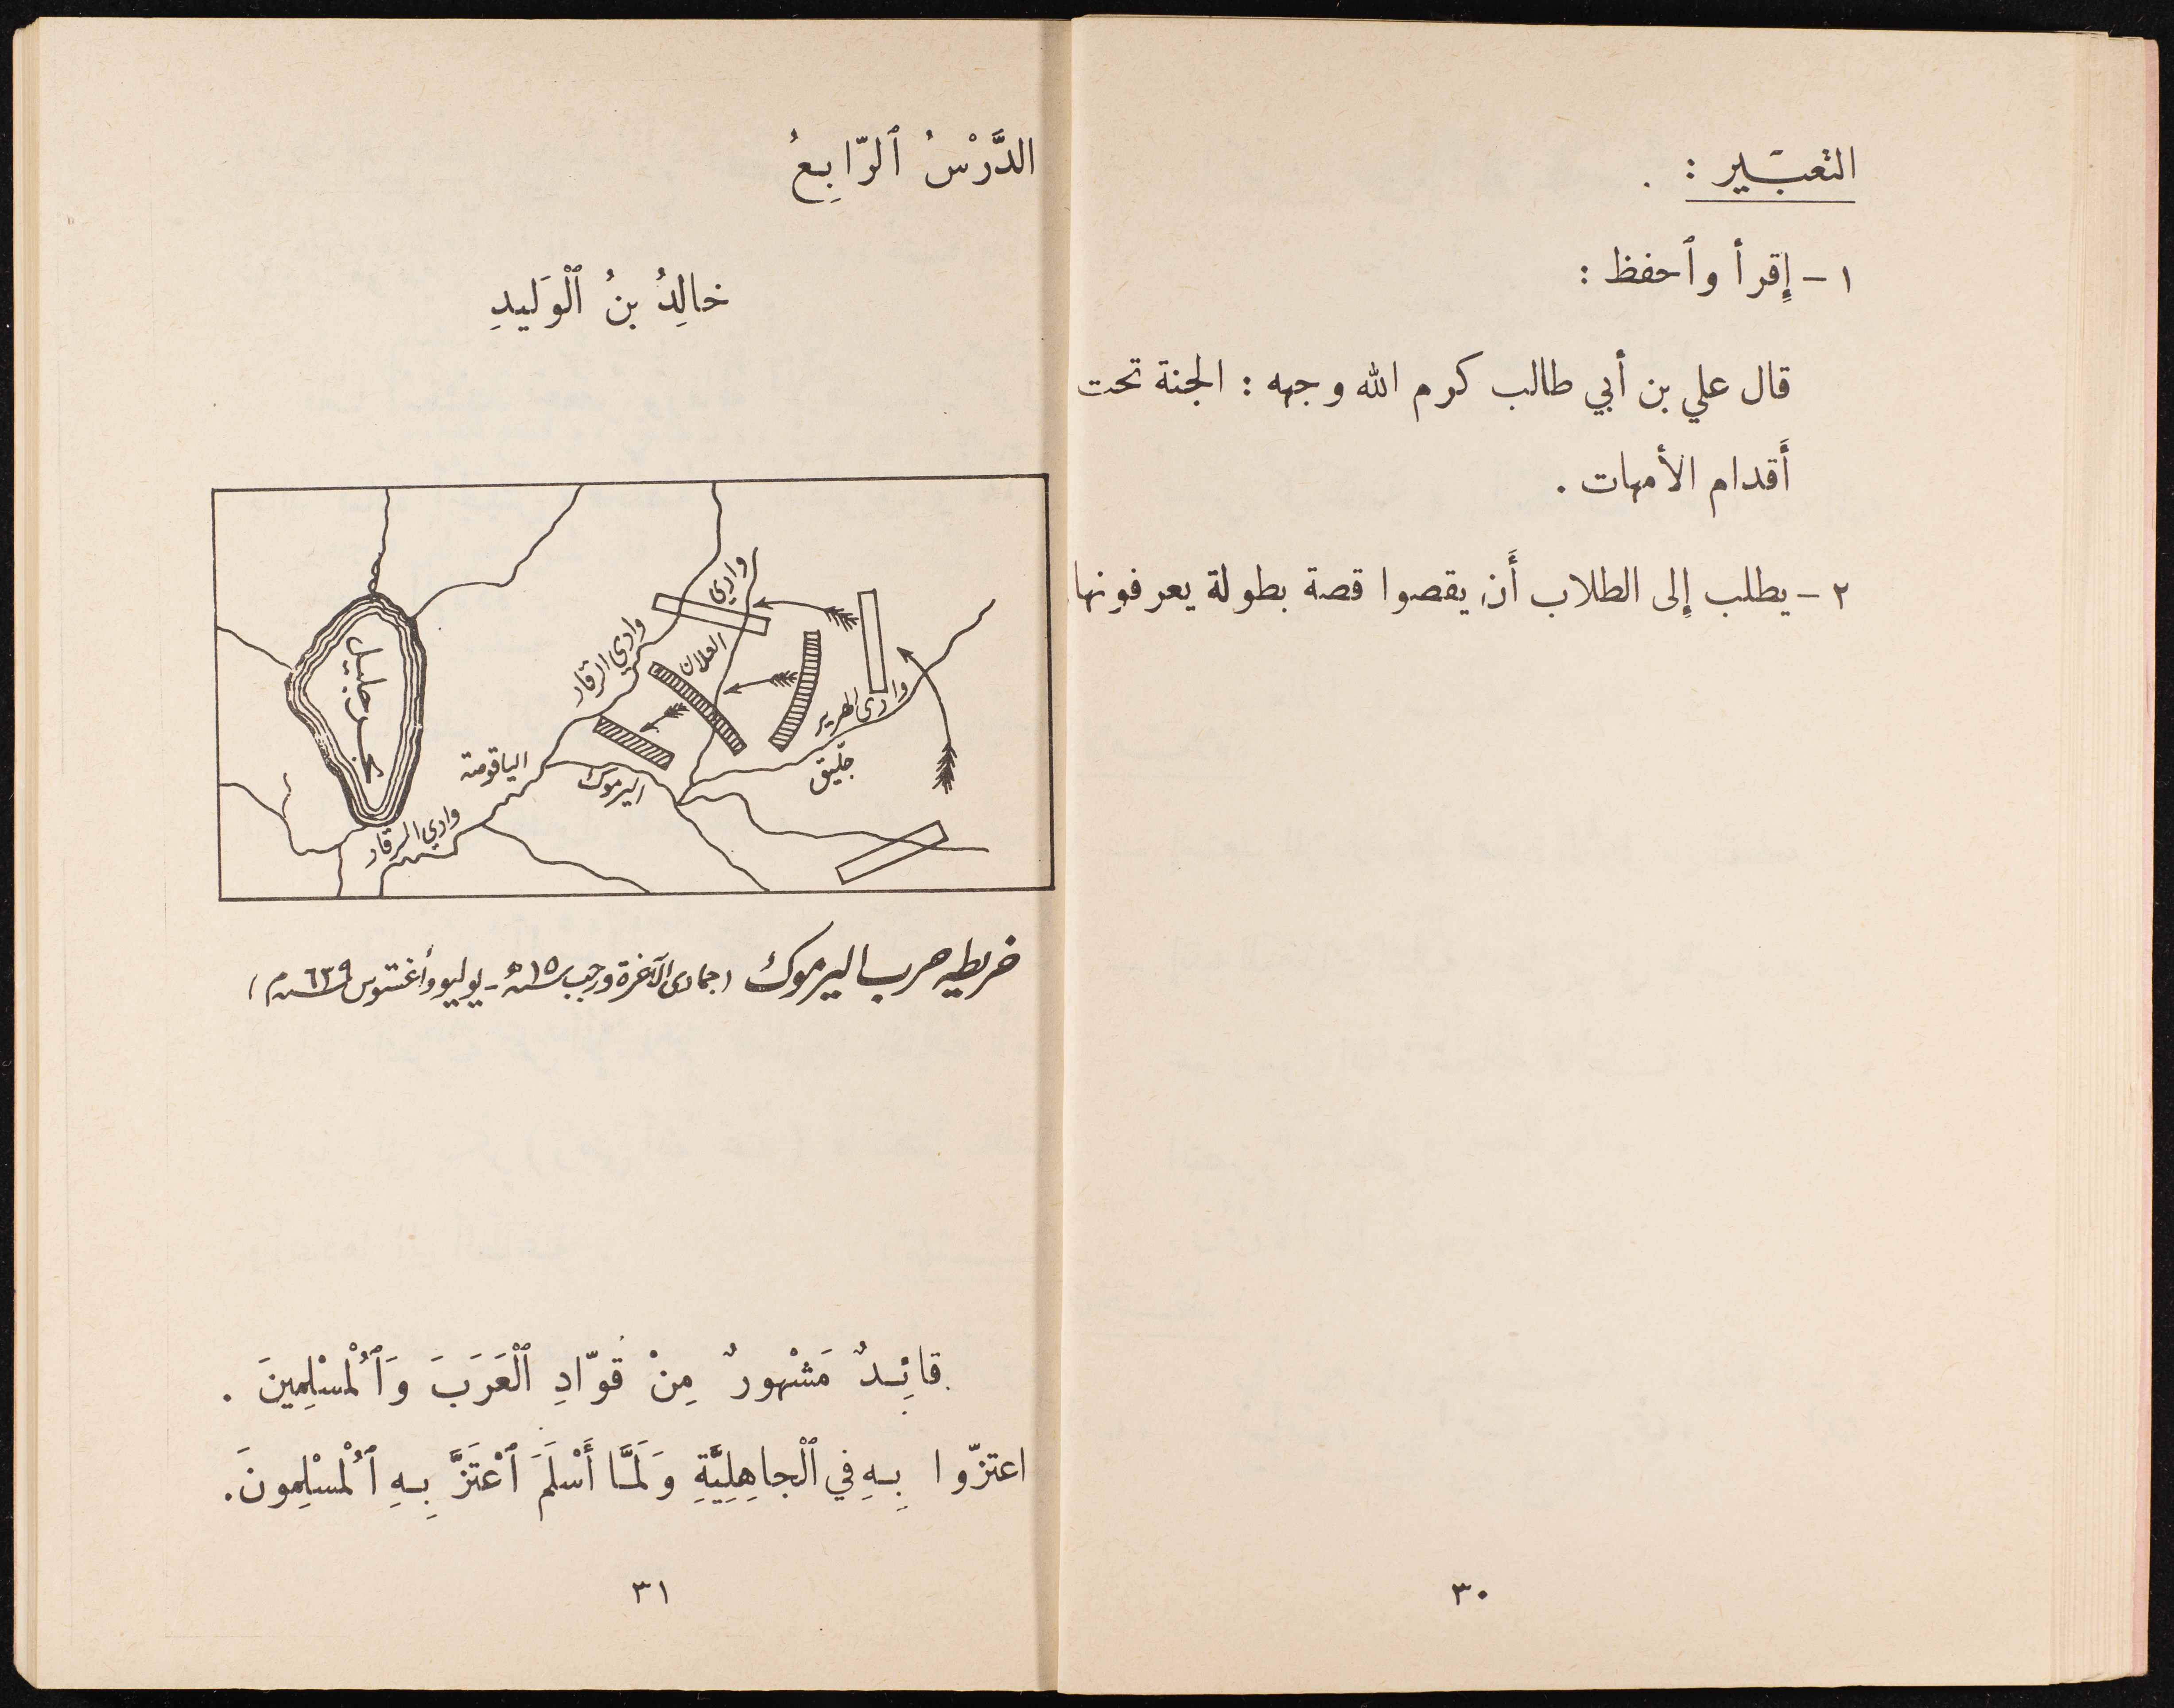 التعبير :
١ - إِقرأ وٱحفظ :
قال علي بن أبي طالب كرم الله وجهه : الجنة تحت
أَقدام الأمهات .
٢ - يطلب إلى الطلاب أَن يقصوا قصة بطولة يعرفونها
٣٠
الدَّرْسُ ٱلرّابِعُ
خالِدُ بنُ ٱلْوَليدِ
وادي
العلان
وادي الرقاد
وادي الهرير
جلّيق
اليرموك
الياقوصة
وادي الرقاد
بحر جليل
خريطه حرب اليرموك (جمادى الآخرة ورجب سنة ١٥ه - يوليو وأغستوس سنة ٦٣٩م)
قائِدٌ مَشْهورٌ مِنْ قوّادِ ٱلْعَرَبَ وَٱلْمُسْلِمِينَ .
اعتزّوا بِهِ في ٱلْجاهِلِيَّةِ وَلَمَّا أَسْلَمَ ٱعْتَزَّ بِهِ ٱلْمُسْلِمونَ.
٣١